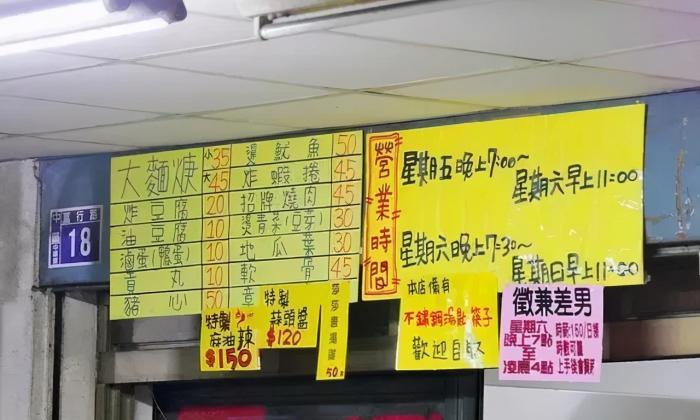 中富行路
18
大麵焿 小35
大45
炸豆腐 20
油豆腐 10
滷蛋(鴨蛋) 10
丸 10
豬心 50
燙魷魚 50
炸蝦捲 45
招牌燒肉 45
燙青菜(豆芽) 30
地瓜葉 30
軟骨 45
特製
麻油辣
$150
特製
蒜頭醬
$120
50
營業時間
星期五晚上7:00~
星期六早上11:00
星期六晚上7:30~
星期日早上11:00
本店備有
不鏽鋼湯匙 筷子
歡迎自取
徵兼差男
星期六
晚上7點
至
凌晨4點
時薪:150/日領
時數可議